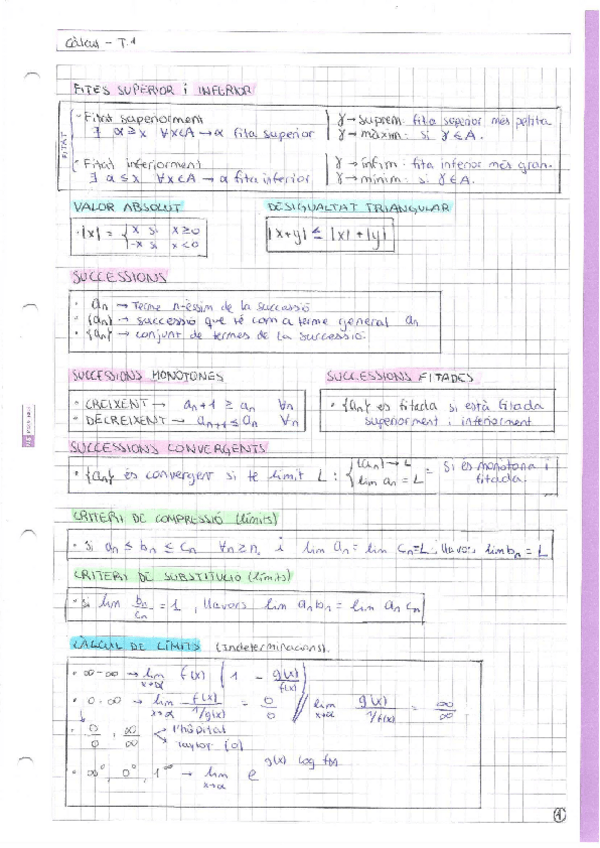 Càlcul - T.1
FITES SUPERIOR i INFERIOR
FITAT
- Fitat superiorment
∃ α ≥ x ∀x∈A → α fita superior
γ → suprem: fita superior més petita
γ → màxim: si γ ∈ A.
- Fitat inferiorment
∃ α ≤ x ∀x∈A → α fita inferior
γ → ínfim: fita inferior més gran.
γ → mínim: si γ ∈ A.
VALOR ABSOLUT
· |x| = { x si x ≥ 0
-x si x < 0
DESIGUALTAT TRIANGULAR
|x+y| ≤ |x|+|y|
SUCCESSIONS
· an → Terme n-èssim de la successió
· (an) → successió que té com a terme general an
· {an} → conjunt de termes de la successió.
SUCCESSIONS MONOTONES
· CREIXENT → an+1 ≥ an ∀n
· DECREIXENT → an+1 ≤ an ∀n
SUCCESSIONS FITADES
· {an} és fitada si està fitada
superiorment i inferiorment
SUCCESSIONS CONVERGENTS
· {an} és convergent si té límit L : { (an) → L
lim an = L
= Si és monòtona i
fitada.
CRITERI DE COMPRESSIÓ (límits)
· Si an ≤ bn ≤ cn ∀n≥n0 i lim an = lim cn = L, llavors lim bn = L
CRITERI DE SUBSTITUCIÓ (límits)
· Si lim bn/cn = 1, llavors lim an bn = lim an cn
CÀLCUL DE LÍMITS (Indeterminacions).
· ∞-∞ → lim x→α f(x) (1 - g(x)/f(x))
· 0·∞ → lim x→α f(x)/1/g(x) = 0/0 // lim x→α g(x)/1/f(x) = ∞/∞
· 0/0, ∞/∞ < l'hôpital
Taylor (0)
· ∞^0, 0^0, 1^∞ → lim x→α e^g(x) log f(x)
1